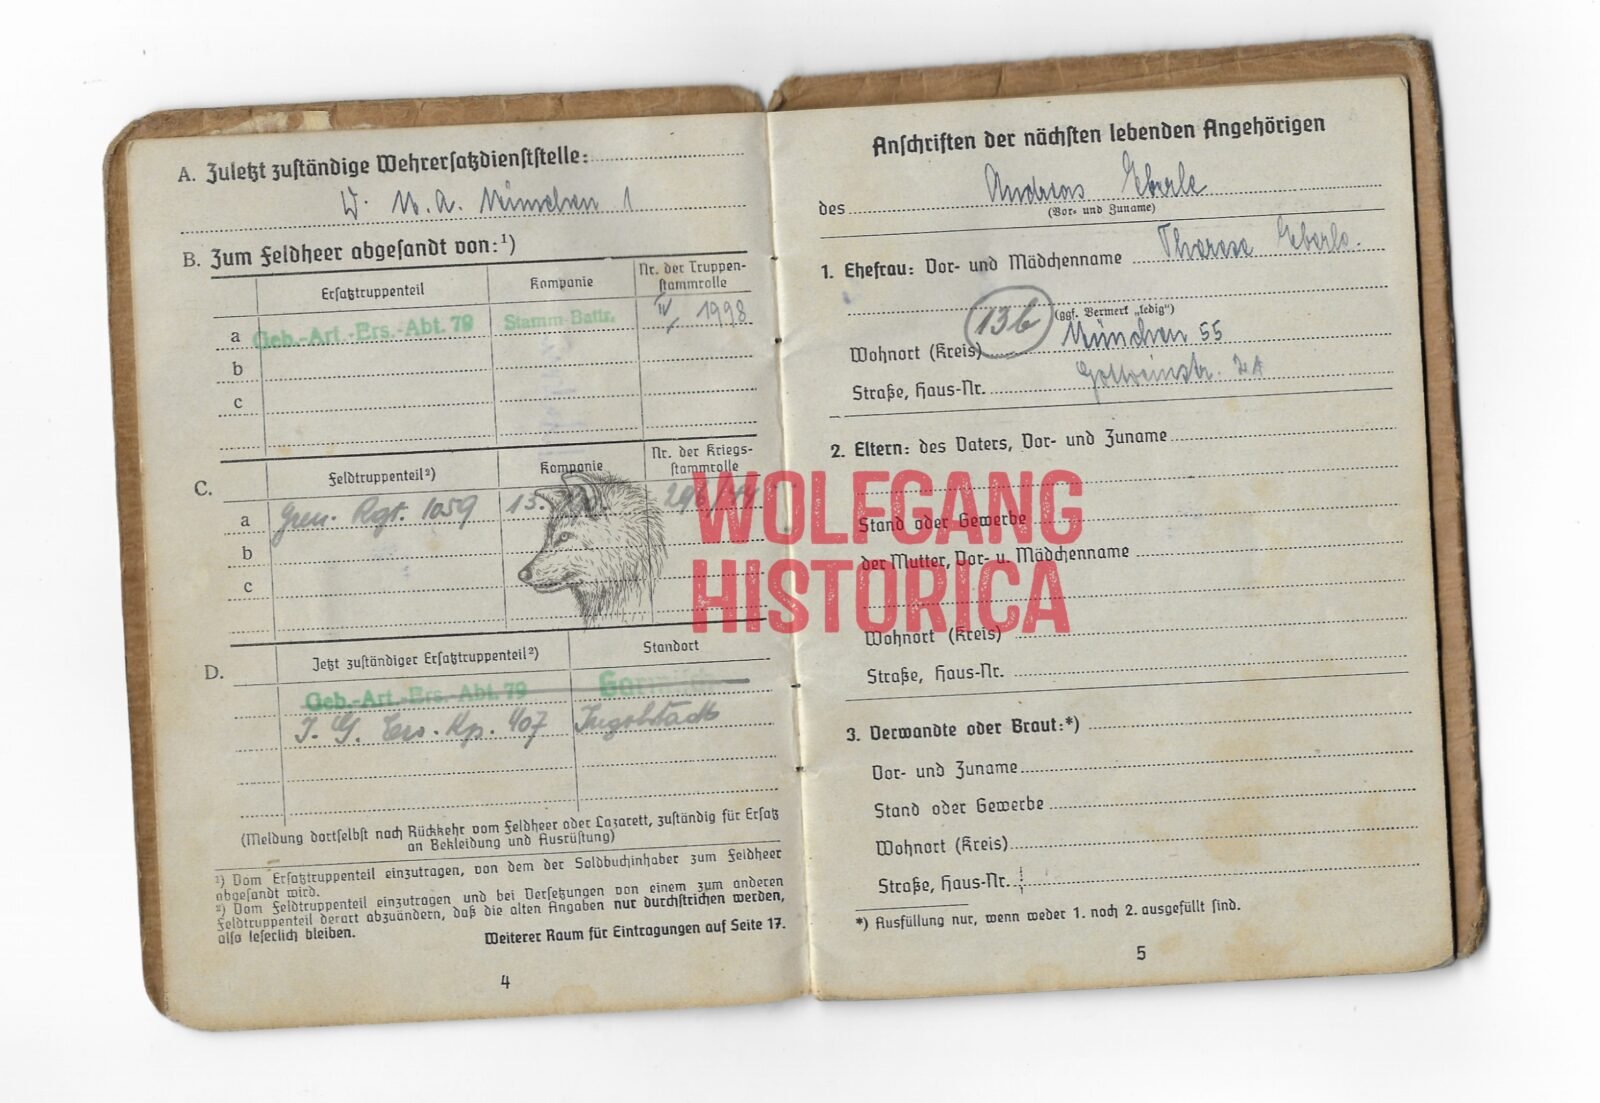 A. Zuletzt zuständige Wehrersatzdienststelle:
W. M. A. München 1
B. Zum Feldheer abgesandt von:¹)
Ersatztruppenteil Kompanie Nr. der Truppen-
stammrolle
a Geb.-Art.-Ers.-Abt. 79 Stamm-Battr. 1998
b
c
C. Feldtruppenteil²) Kompanie Nr. der Kriegs-
stammrolle
a Gren. Rgt. 1059 13.
b
c
D. Jetzt zuständiger Ersatztruppenteil²) Standort
Geb.-Art.-Ers.-Abt. 79
J. G. Ers. Kp. 407 Ingolstadt
(Meldung dortselbst nach Rückkehr vom Feldheer oder Lazarett, zuständig für Ersatz
an Bekleidung und Ausrüstung)
¹) Vom Ersatztruppenteil einzutragen, von dem der Soldbuchinhaber zum Feldheer
abgesandt wird.
²) Vom Feldtruppenteil einzutragen und bei Versetzungen von einem zum anderen
Feldtruppenteil derart abzuändern, daß die alten Angaben nur durchstrichen werden,
also leserlich bleiben.
Weiterer Raum für Eintragungen auf Seite 17.
4
Anschriften der nächsten lebenden Angehörigen
des Andreas Eberle
(Vor- und Zuname)
1. Ehefrau: Vor- und Mädchenname Therese Eberle.
(ggf. Vermerk „ledig")
Wohnort (Kreis) 13b München 55
Straße, Haus-Nr.
2. Eltern: des Vaters, Vor- und Zuname
Stand oder Gewerbe
der Mutter, Vor- u. Mädchenname
Wohnort (Kreis)
Straße, Haus-Nr.
3. Verwandte oder Braut:*)
Vor- und Zuname
Stand oder Gewerbe
Wohnort (Kreis)
Straße, Haus-Nr.
*) Ausfüllung nur, wenn weder 1. noch 2. ausgefüllt sind.
5
WOLFGANG
HISTORICA